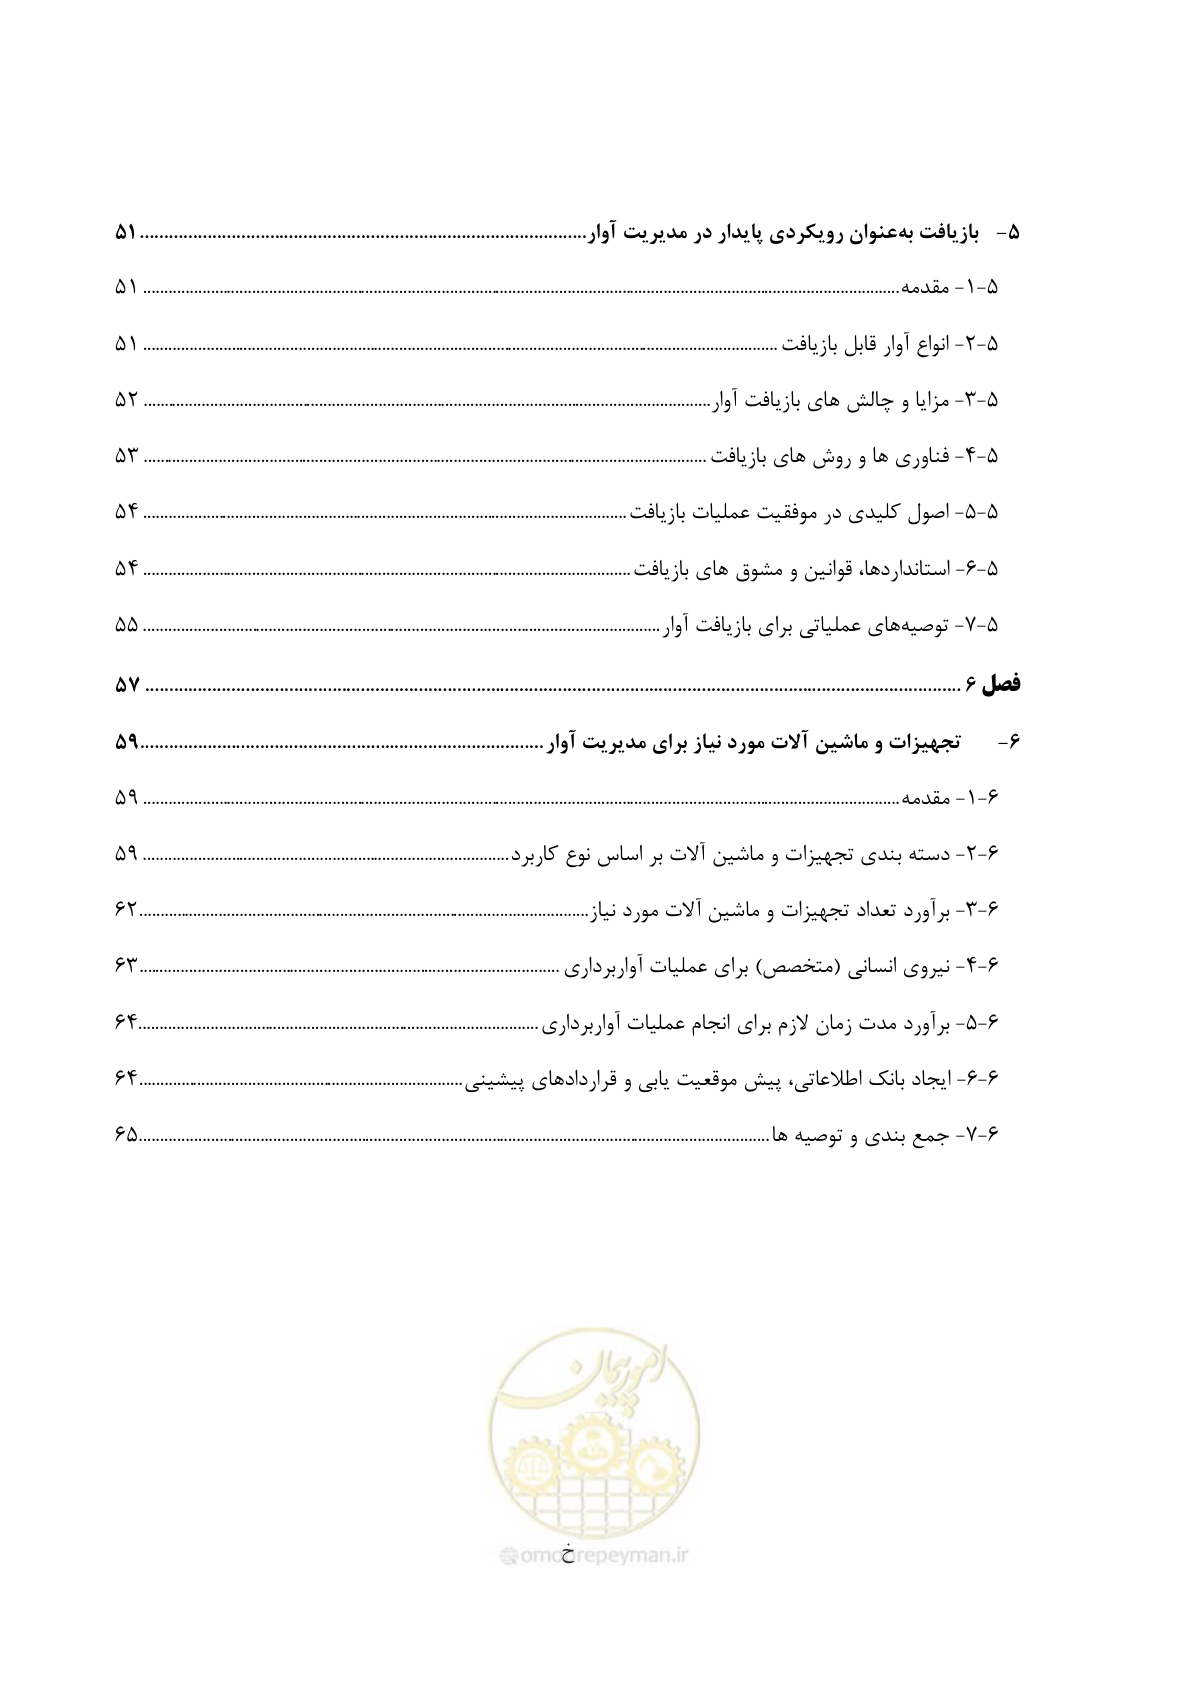 ۵- بازیافت به‌عنوان رویکردی پایدار در مدیریت آوار ........ ۵۱
۵-۱- مقدمه ........ ۵۱
۵-۲- انواع آوار قابل بازیافت ........ ۵۱
۵-۳- مزایا و چالش های بازیافت آوار ........ ۵۲
۵-۴- فناوری ها و روش های بازیافت ........ ۵۳
۵-۵- اصول کلیدی در موفقیت عملیات بازیافت ........ ۵۴
۵-۶- استانداردها، قوانین و مشوق های بازیافت ........ ۵۴
۵-۷- توصیه‌های عملیاتی برای بازیافت آوار ........ ۵۵
فصل ۶ ........ ۵۷
۶- تجهیزات و ماشین آلات مورد نیاز برای مدیریت آوار ........ ۵۹
۶-۱- مقدمه ........ ۵۹
۶-۲- دسته بندی تجهیزات و ماشین آلات بر اساس نوع کاربرد ........ ۵۹
۶-۳- برآورد تعداد تجهیزات و ماشین آلات مورد نیاز ........ ۶۲
۶-۴- نیروی انسانی (متخصص) برای عملیات آواربرداری ........ ۶۳
۶-۵- برآورد مدت زمان لازم برای انجام عملیات آواربرداری ........ ۶۴
۶-۶- ایجاد بانک اطلاعاتی، پیش موقعیت یابی و قراردادهای پیشینی ........ ۶۴
۶-۷- جمع بندی و توصیه ها ........ ۶۵
امور پیمان
omoorepeyman.ir
خ